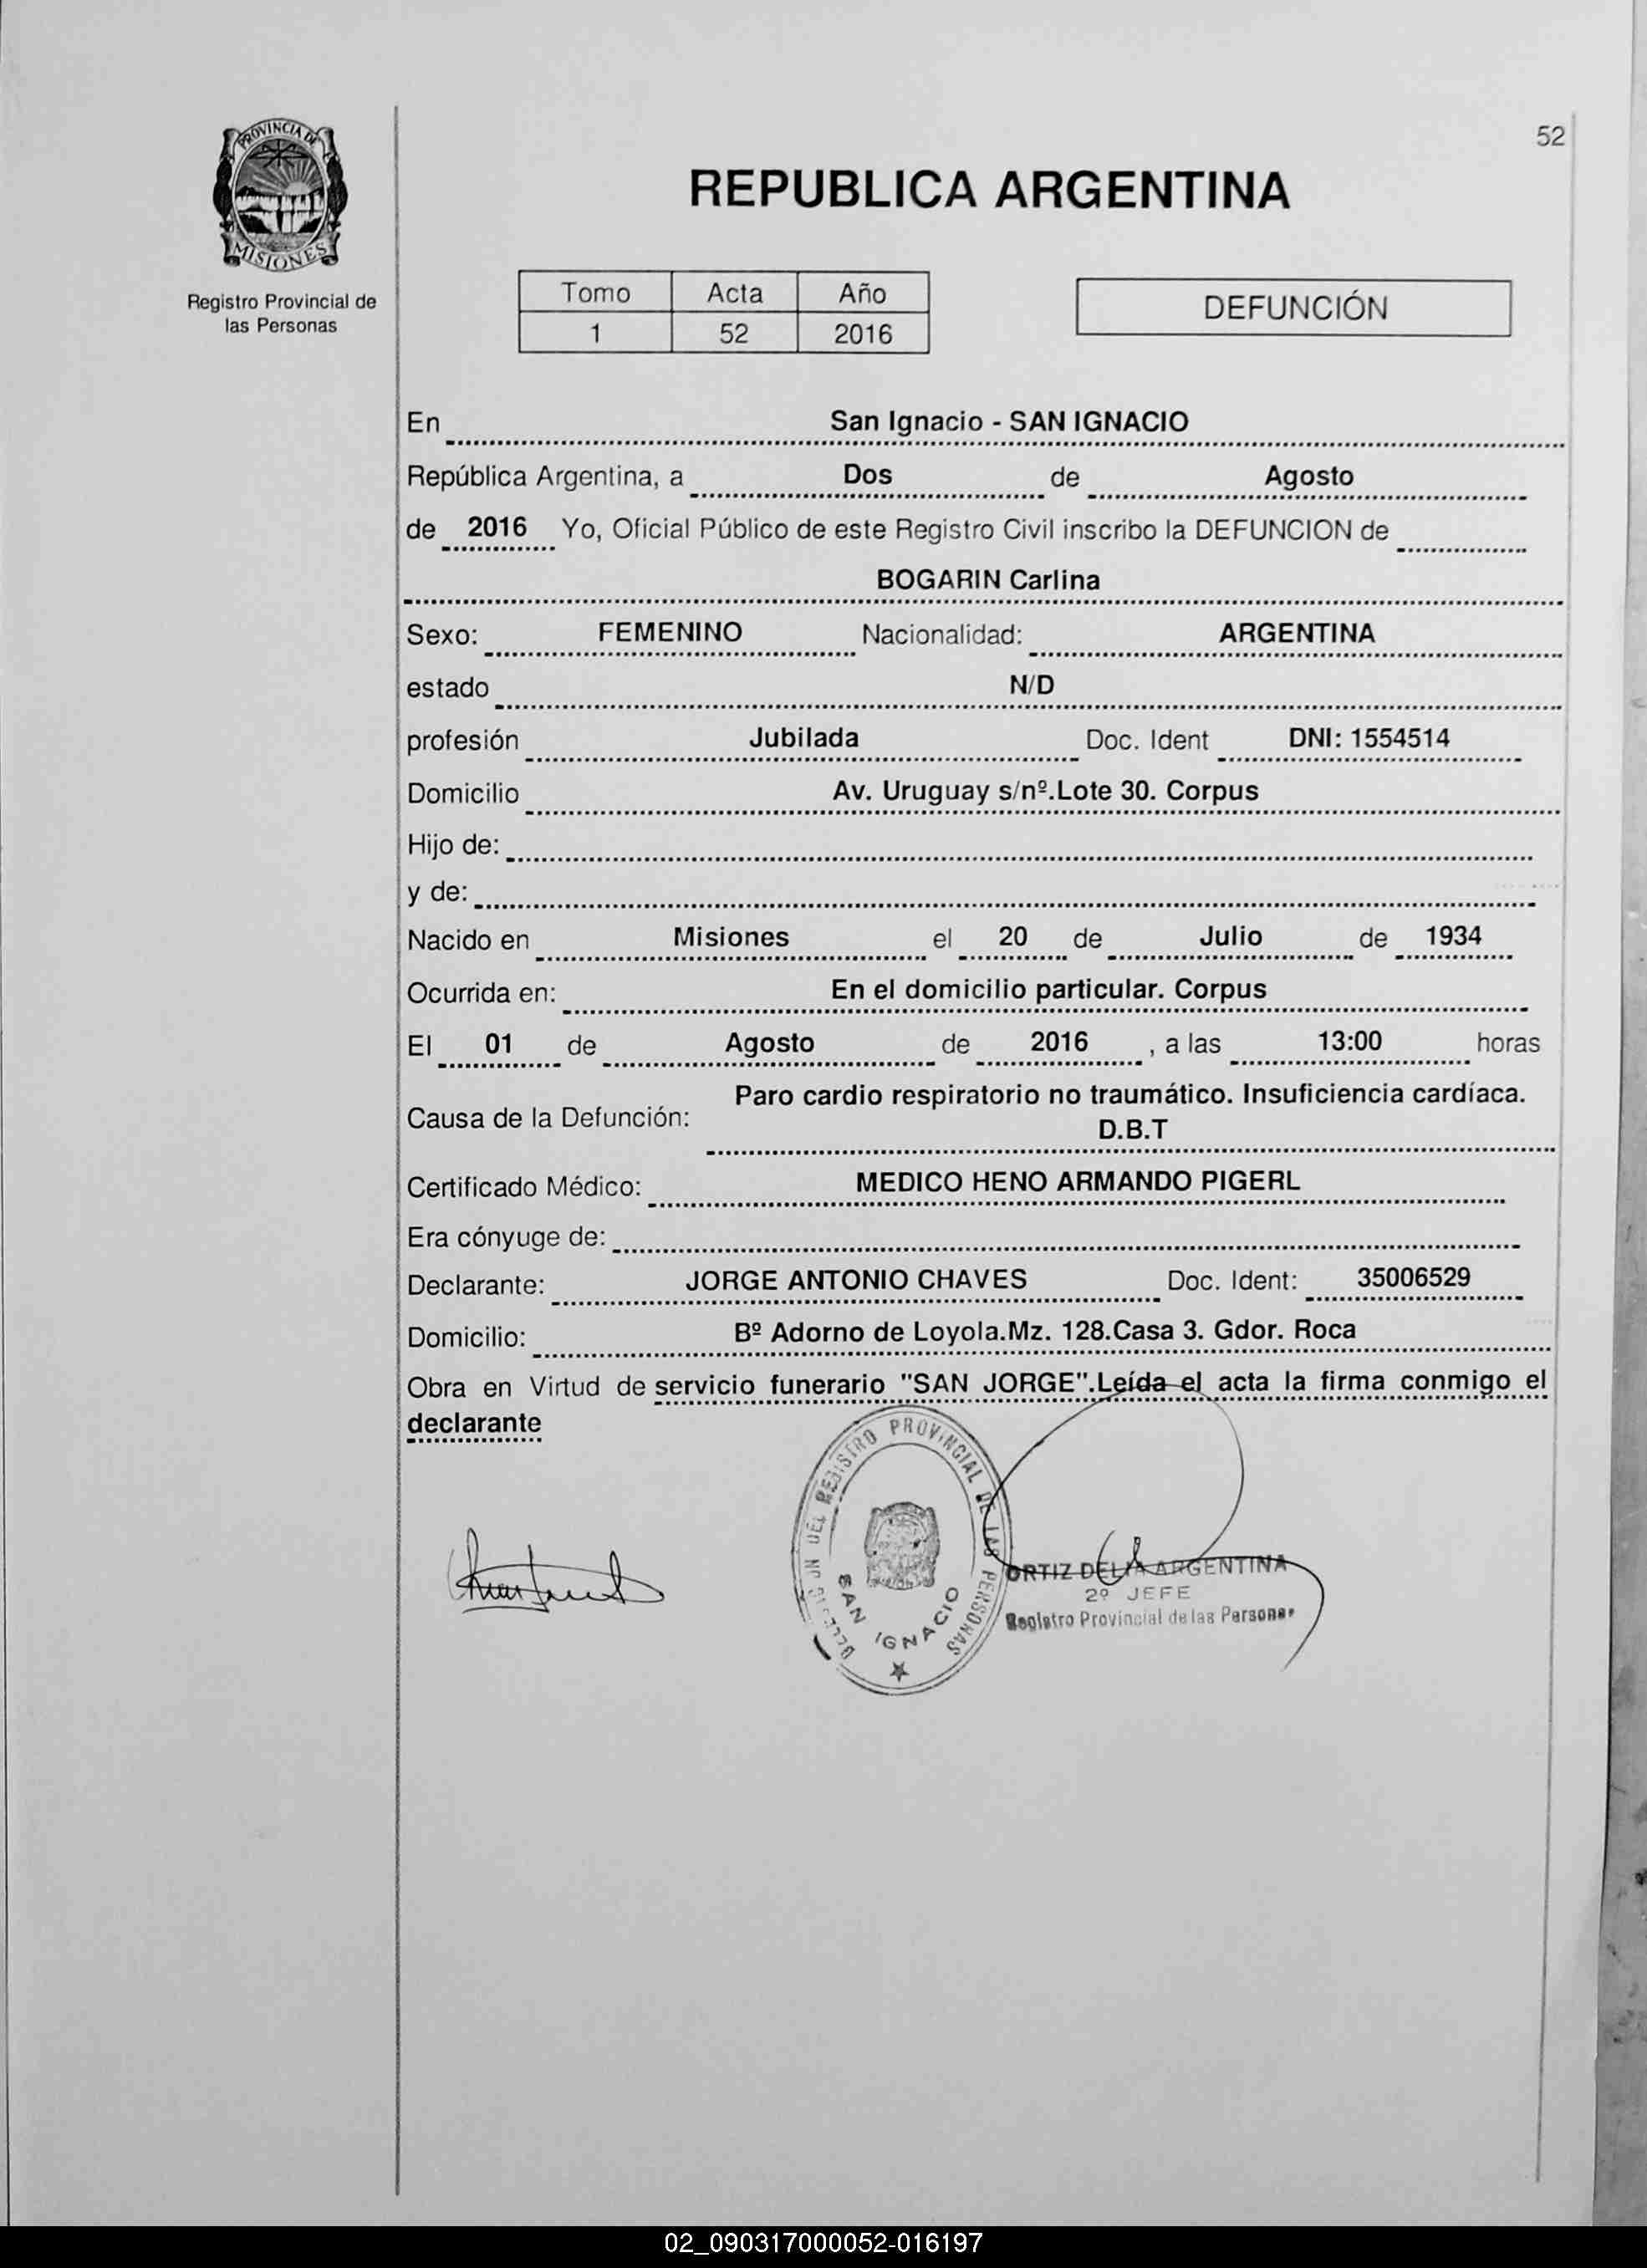 52
PROVINCIA DE
MISIONES
Registro Provincial de
las Personas
REPUBLICA ARGENTINA
Tomo Acta Año
1 52 2016
DEFUNCIÓN
En San Ignacio - SAN IGNACIO
República Argentina, a Dos de Agosto
de 2016 Yo, Oficial Público de este Registro Civil inscribo la DEFUNCION de
BOGARIN Carlina
Sexo: FEMENINO Nacionalidad: ARGENTINA
estado N/D
profesión Jubilada Doc. Ident DNI: 1554514
Domicilio Av. Uruguay s/nº.Lote 30. Corpus
Hijo de:
y de:
Nacido en Misiones el 20 de Julio de 1934
Ocurrida en: En el domicilio particular. Corpus
El 01 de Agosto de 2016 , a las 13:00 horas
Causa de la Defunción: Paro cardio respiratorio no traumático. Insuficiencia cardíaca.
D.B.T
Certificado Médico: MEDICO HENO ARMANDO PIGERL
Era cónyuge de:
Declarante: JORGE ANTONIO CHAVES Doc. Ident: 35006529
Domicilio: Bº Adorno de Loyola.Mz. 128.Casa 3. Gdor. Roca
Obra en Virtud de servicio funerario "SAN JORGE".Leída el acta la firma conmigo el
declarante
DEL REGISTRO PROVINCIAL DE LAS PERSONAS
SAN IGNACIO
ORTIZ DELIA ARGENTINA
2º JEFE
Registro Provincial de las Personas
02_090317000052-016197